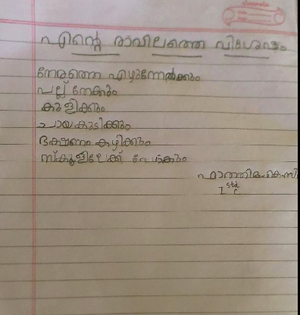 എന്റെ രാവിലത്തെ വിശേഷം
നേരത്തെ എഴുന്നേൽക്കും
പല്ല് തേക്കും
കുളിക്കും
ചായകുടിക്കും
ഭക്ഷണം കഴിക്കും
സ്കൂളിലേക്ക് പോകും
ഫാത്തിമ കെ സി
I std